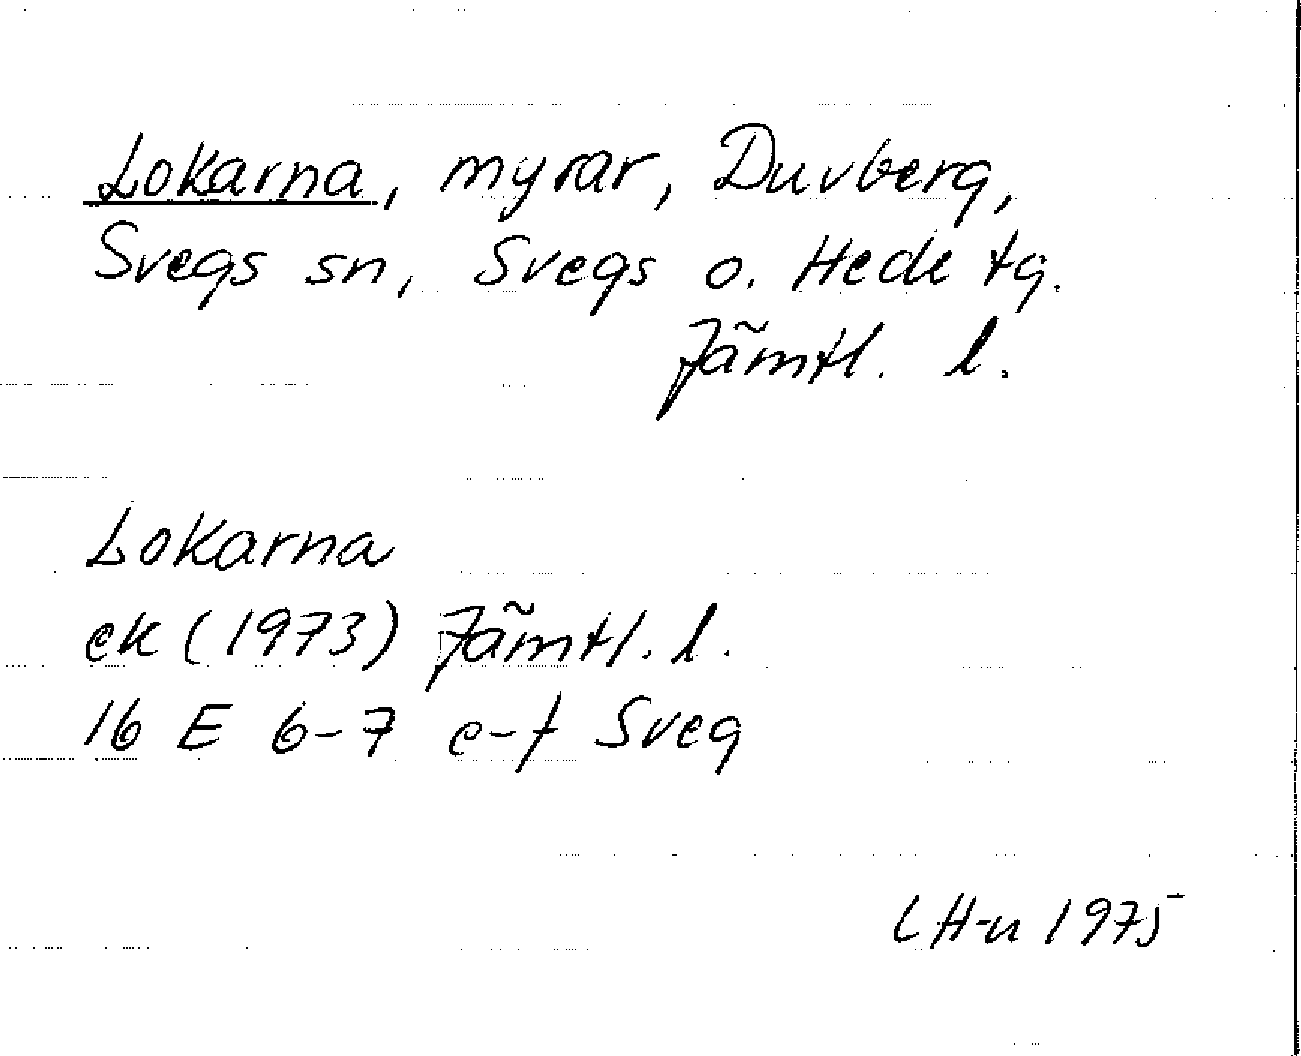 Lokarna, myrar, Duvberg,
Svegs sn, Svegs o. Hede tg.
Jämtl. l.
Lokarna
ek (1973) Jämtl. l.
16 E 6-7 e-f Sveg
LH-n 1975